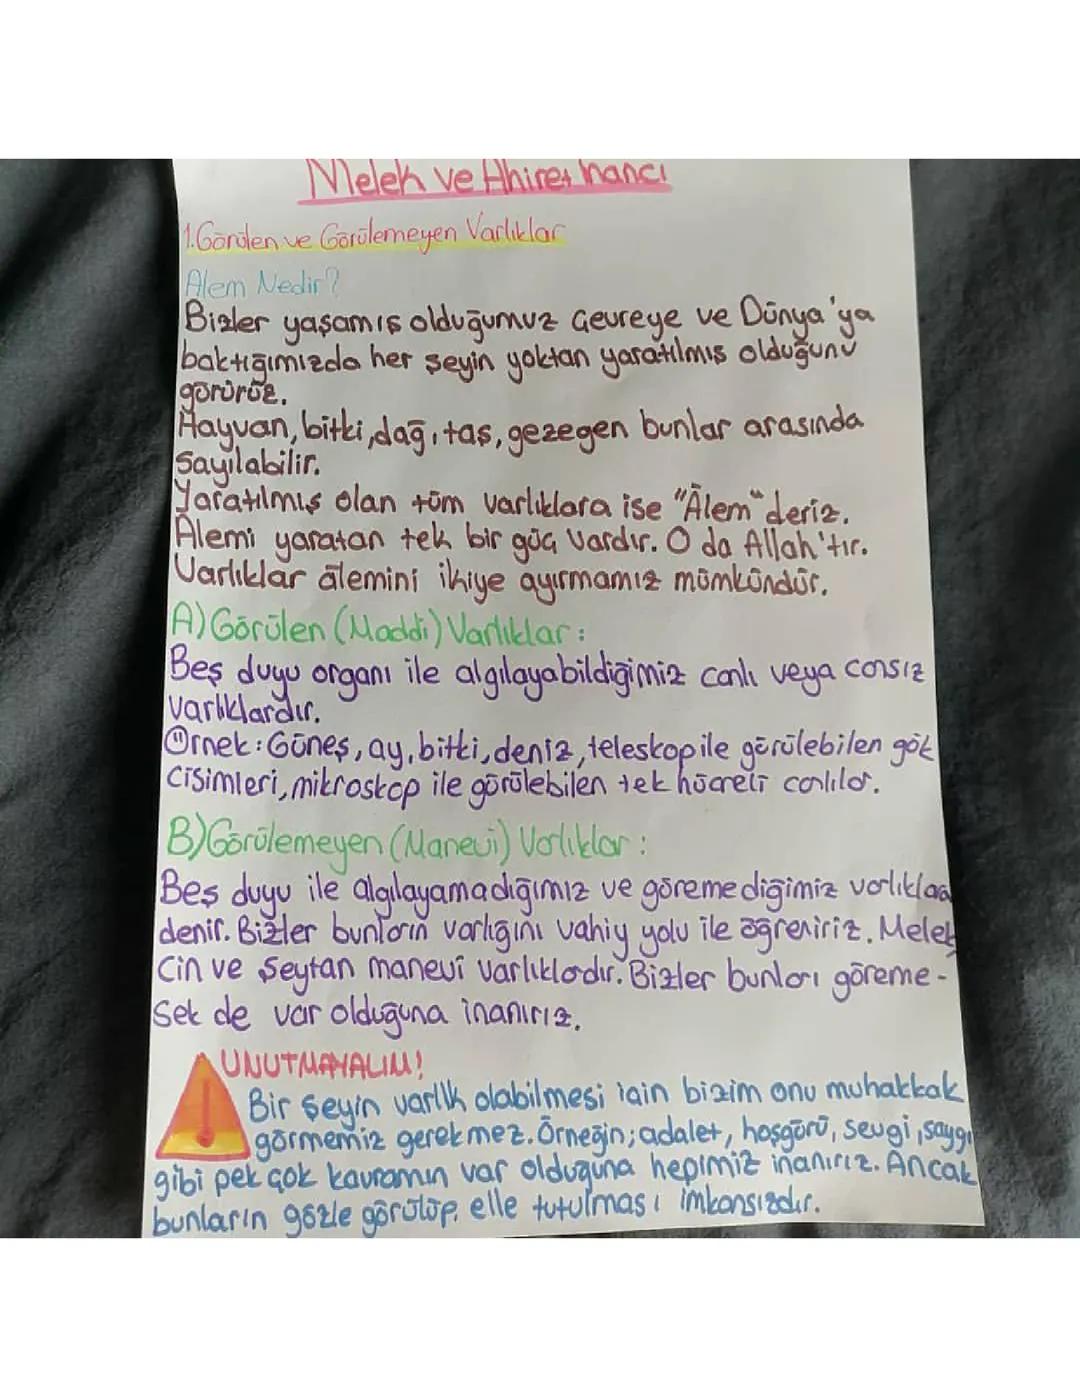 Melek ve Ahiret İnancı
1.Görülen ve Görülemeyen Varlıklar
Alem Nedir?
Bizler yaşamış olduğumuz çevreye ve Dünya'ya
baktığımızda her şeyin yoktan yaratılmış olduğunu
görürüz.
Hayvan, bitki, dağ, taş, gezegen bunlar arasında
sayılabilir.
Yaratılmış olan tüm varlıklara ise "Âlem" deriz.
Âlemi yaratan tek bir güç vardır. O da Allah'tır.
Varlıklar âlemini ikiye ayırmamız mümkündür.
A) Görülen (Maddi) Varlıklar:
Beş duyu organı ile algılayabildiğimiz canlı veya cansız
varlıklardır.
Örnek: Güneş, ay, bitki, deniz, teleskop ile görülebilen gök
cisimleri, mikroskop ile görülebilen tek hücreli canlılar.
B) Görülemeyen (Manevi) Varlıklar:
Beş duyu ile algılayamadığımız ve göremediğimiz varlıklara
denir. Bizler bunların varlığını vahiy yolu ile öğreniriz. Melek
Cin ve Şeytan manevi varlıklardır. Bizler bunları göreme-
sek de var olduğuna inanırız.
UNUTMAYALIM!
Bir şeyin varlık olabilmesi için bizim onu muhakkak
görmemiz gerekmez. Örneğin; adalet, hoşgörü, sevgi, saygı
gibi pek çok kavramın var olduğuna hepimiz inanırız. Ancak
bunların gözle görülüp, elle tutulması imkansızdır.